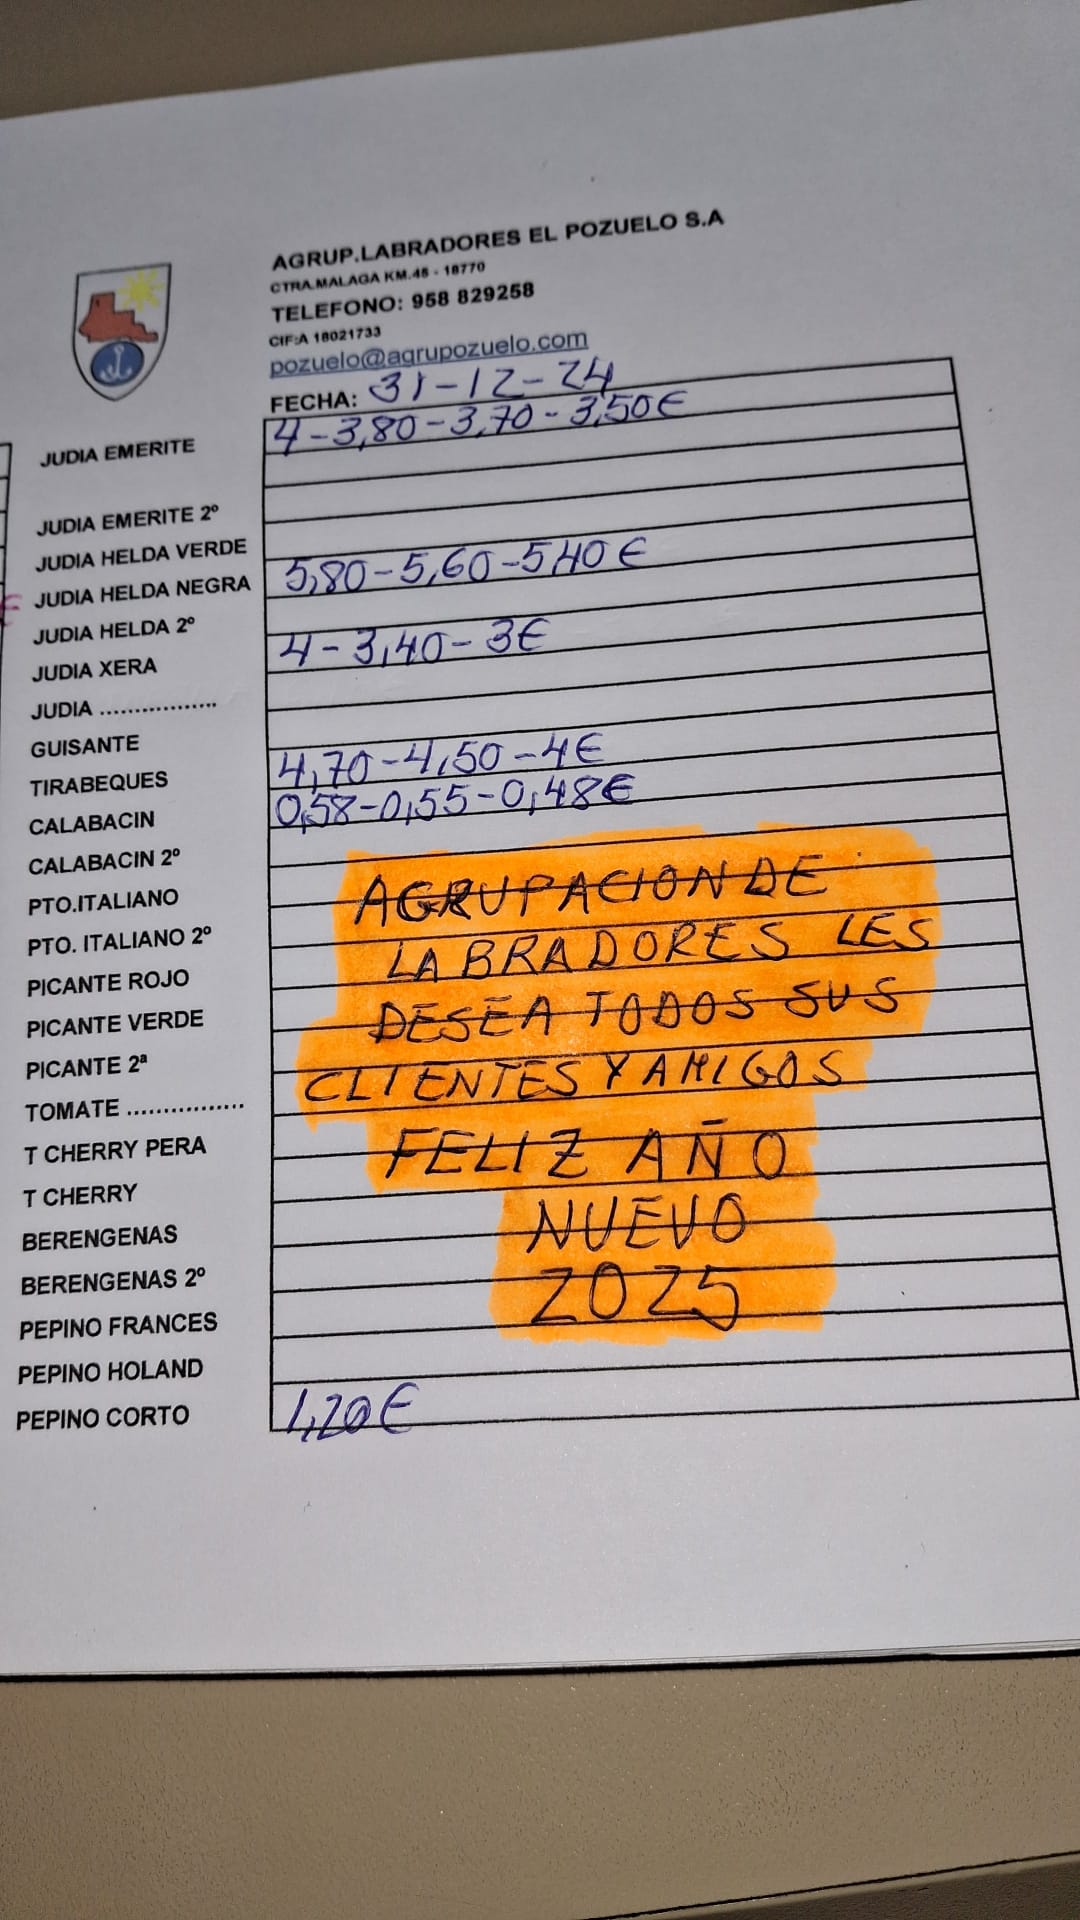 AGRUP.LABRADORES EL POZUELO S.A
CTRA.MALAGA KM.45 - 18770
TELEFONO: 958 829258
CIF:A 18021733
pozuelo@agrupozuelo.com
FECHA: 31-12-24
JUDIA EMERITE 4-3,80-3,70-3,50€
JUDIA EMERITE 2º
JUDIA HELDA VERDE
JUDIA HELDA NEGRA 5,80-5,60-5,40€
JUDIA HELDA 2º
JUDIA XERA 4-3,40-3€
JUDIA .................
GUISANTE
TIRABEQUES 4,70-4,50-4€
CALABACIN 0,58-0,55-0,48€
CALABACIN 2º
PTO.ITALIANO AGRUPACION DE
PTO. ITALIANO 2º LABRADORES LES
PICANTE ROJO
PICANTE VERDE DESEA TODOS SUS
PICANTE 2ª CLIENTES Y AMIGOS
TOMATE .................
T CHERRY PERA FELIZ AÑO
T CHERRY
BERENGENAS NUEVO
BERENGENAS 2º
PEPINO FRANCES 2025
PEPINO HOLAND
PEPINO CORTO 1,20€